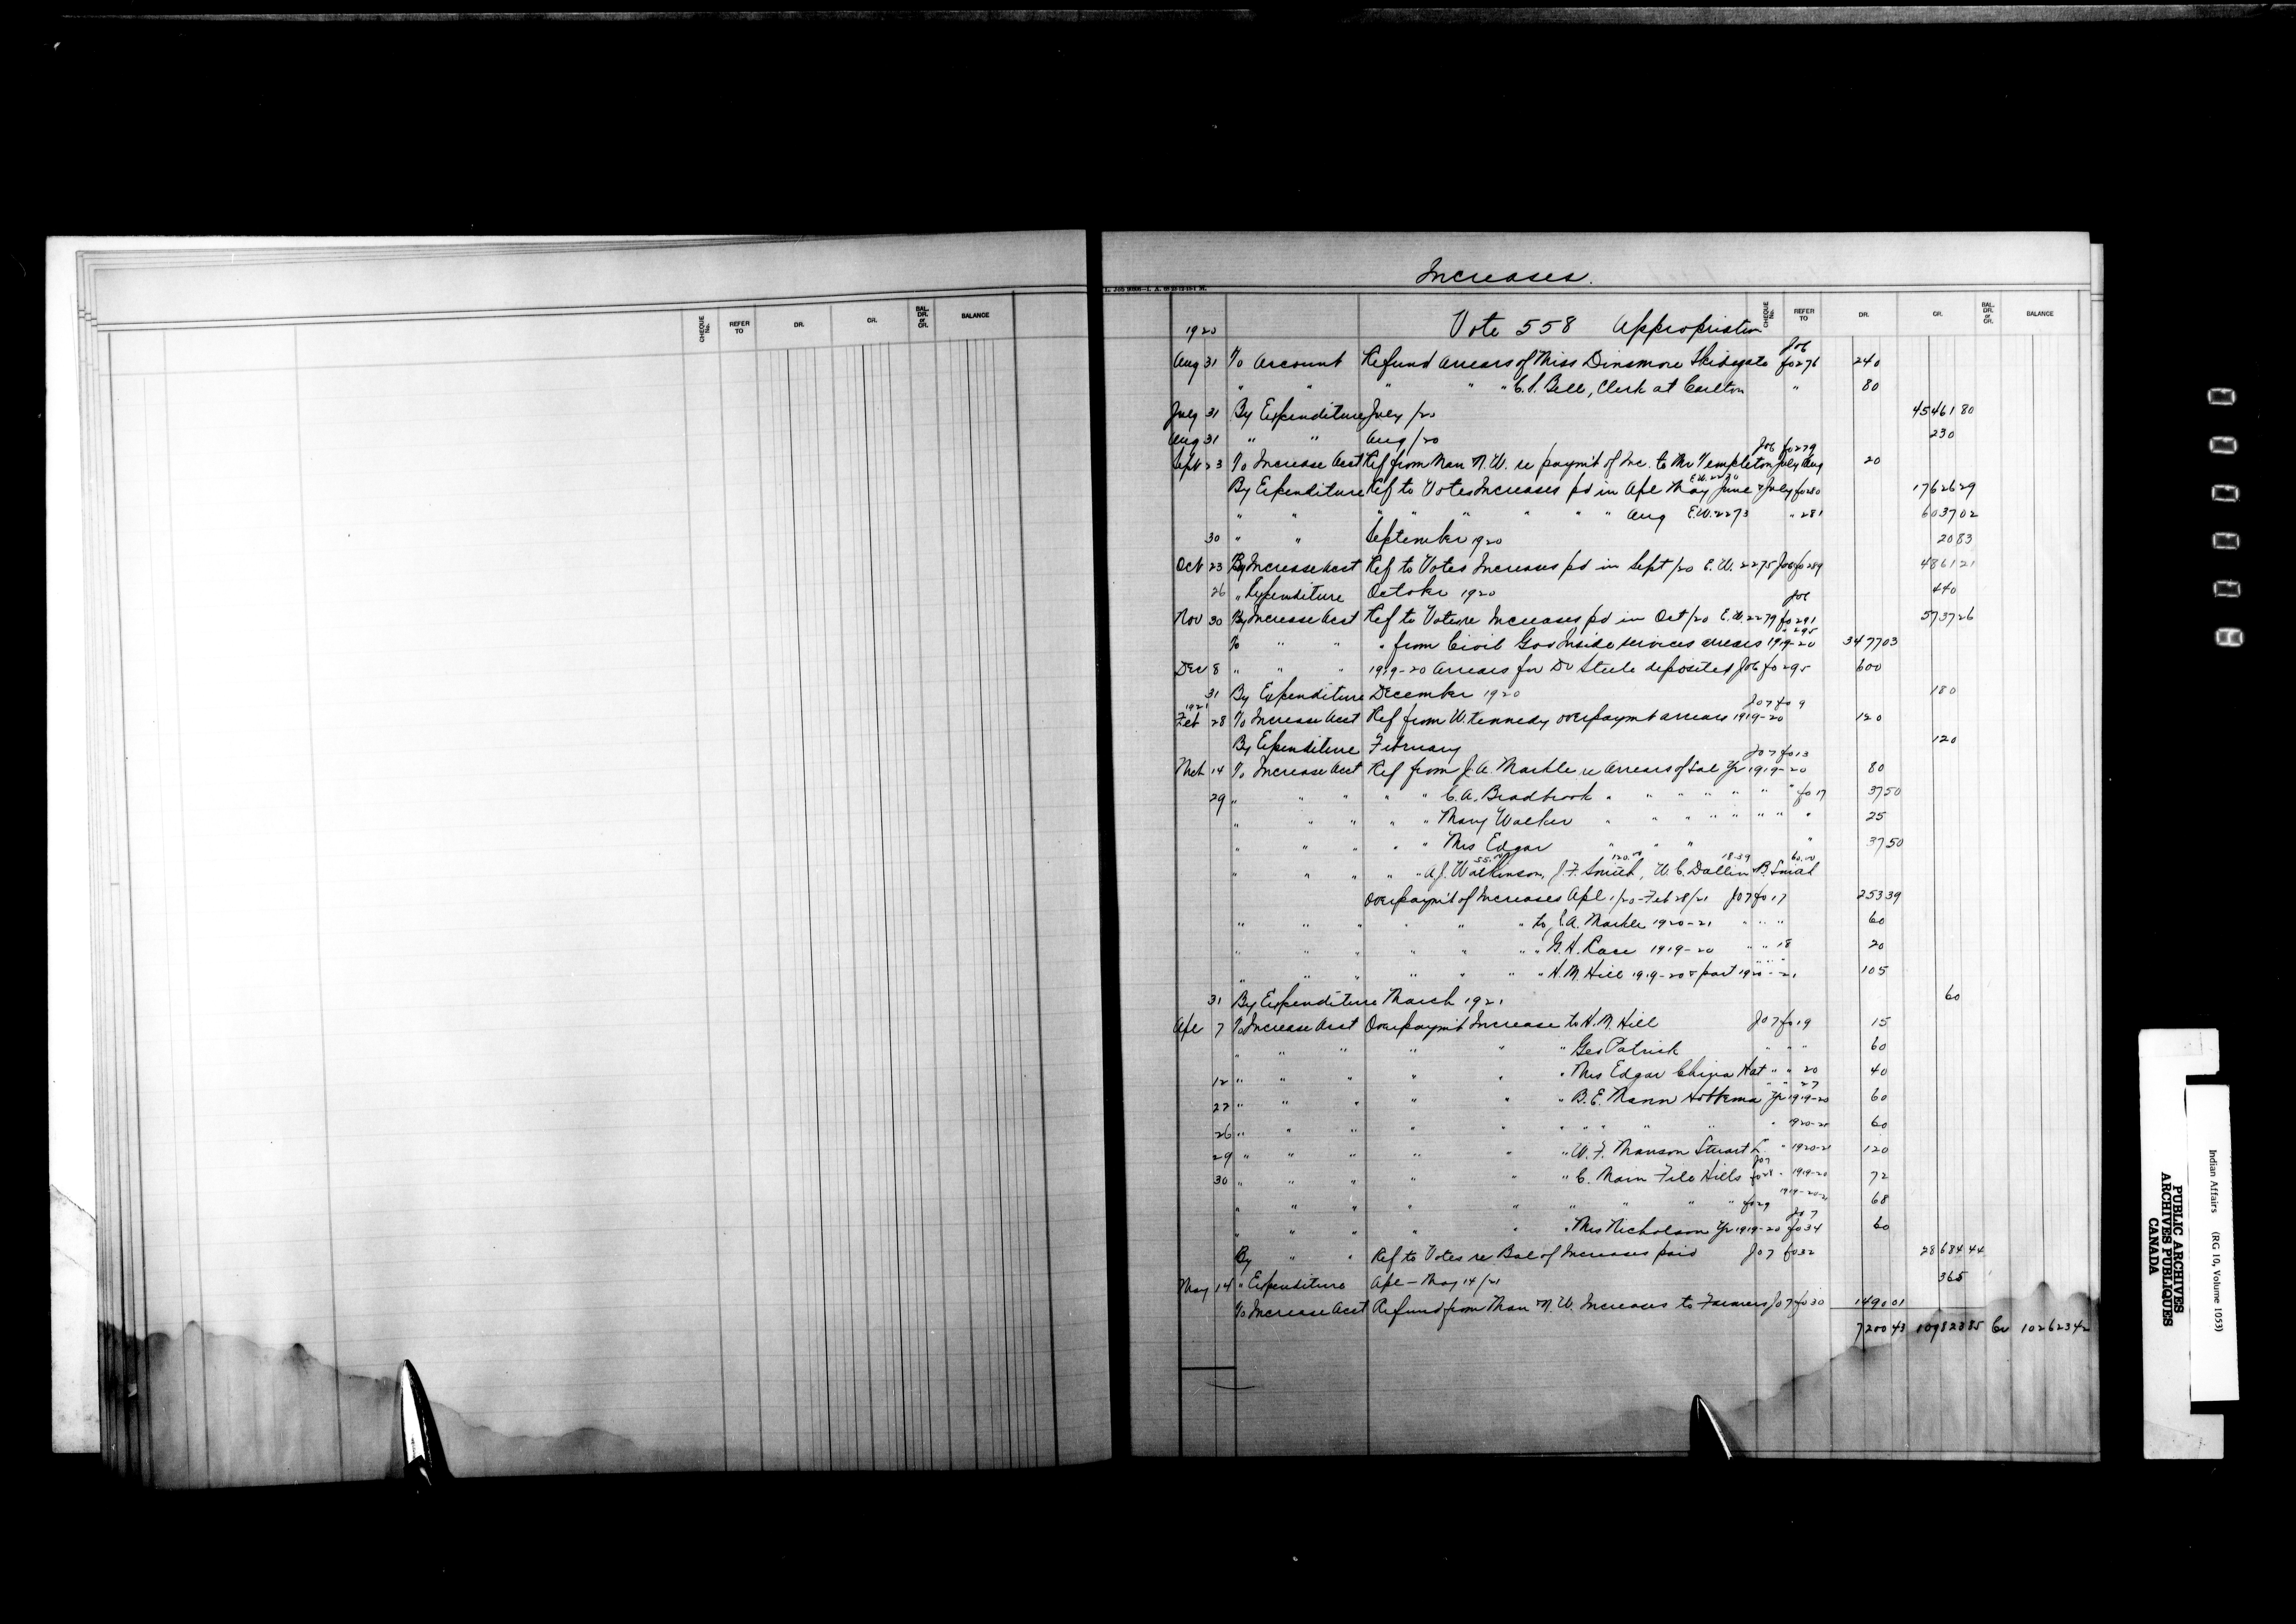 CHEQUE No. REFER TO DR. CR. BAL. DR. or CR. BALANCE
Increases.
CHEQUE No. REFER TO DR. CR. BAL. DR. or CR. BALANCE
1920 Vote 558 Appropriation
Jo6
Aug 31 To Account Refund Arrears of Miss Dinsmore Skidegate fo 276 240
" " " " " C.P. Bell, Clerk at Carlton " 80
July 31 By Expenditure July /20 45461 80
Aug 31 " " Aug /20 230
Jo6 fo 279
Sept 23 To Increase Acct Ref from Man N.W. re paym't of Inc. to Mr Templeton July Aug 20
By Expenditure Ref to Votes Increases pd in Apl May June & July fo 280 17626 29
" " " " " " " Aug E.W. 2273 " 281 6037 02
30 " " September 1920 20 83
Oct 23 By Increase Acct Ref to Votes Increases pd in Sept /20 E.W. 2275 Jo6 fo 289 4861 21
26 " Expenditure October 1920 440
Jo6
Nov 30 By Increase Acct Ref to Votes re Increases pd in Oct /20 E.W. 2279 fo 291 5737 26
" 295
To " " " from Civil Gov Inside services arrears 1919-20 3477 03
Dec 8 " " " 1919-20 Arrears for Dr Steele deposited Jo6 fo 295 600
31 By Expenditure December 1920 180
1921 Jo7 fo 9
Feb 28 To Increase Acct Ref from W. Kennedy overpaymt arrears 1919-20 120
By Expenditure February 120
Jo7 fo 13
Mch 14 To Increase Acct Ref from J.A. Markle re Arrears of Sal Yr 1919-20 80
29 " " " " " C.A. Bradbrook " " " " " " " fo 17 37 50
" " " " " Mary Walker " " " " " " " " 25
" " " " " Mrs Edgar " " " " " 37 50
55.00 120.00 18.39 60.00
" " " " " A.J. Watkinson, J.F. Smith, W.C. Dallin B. Smith
Overpaym't of Increases Apl 1/20 - Feb 28/21 Jo7 fo 17 253 39
" " " " " " to J.A. Markle 1920-21 " " " 60
" " " " " " " G.H. Race 1919-20 " " 18 20
" " " " " " " H.M. Hill 1919-20 & part 1920-21 " " " 105
31 By Expenditure March 1921 60
Apl 7 To Increase Acct Overpaym't Increase to H.M. Hill Jo7 fo 19 15
" " " " " " Geo Patrick " " " 60
12 " " " " " " Mrs Edgar China Hat " " 20 40
" " 27
22 " " " " " " B.E. Mann Yr 1919-20 60
26 " " " " " " " " " " " 1920-21 60
29 " " " " " " W.F. Manson Stuart L. " 1920-21 120
Jo7
30 " " " " " " C. Main File Hills fo 28 " 1919-20 72
1919-20-21
" " " " " " " " " fo 29 68
Jo7
" " " " " " Mrs Nicholson Yr 1919-20 fo 34 60
By " " Ref to Votes re Bal of Increases paid Jo7 fo 32 28684 44
May 14 " Expenditure Apl - May 14/21 365
To Increase Acct Refund from Man & N.W. Increases to Farmers Jo7 fo 30 1490 01
7200 43 109823 85 Cr 102623 42
Indian Affairs (RG 10, Volume 1053)
PUBLIC ARCHIVES
ARCHIVES PUBLIQUES
CANADA